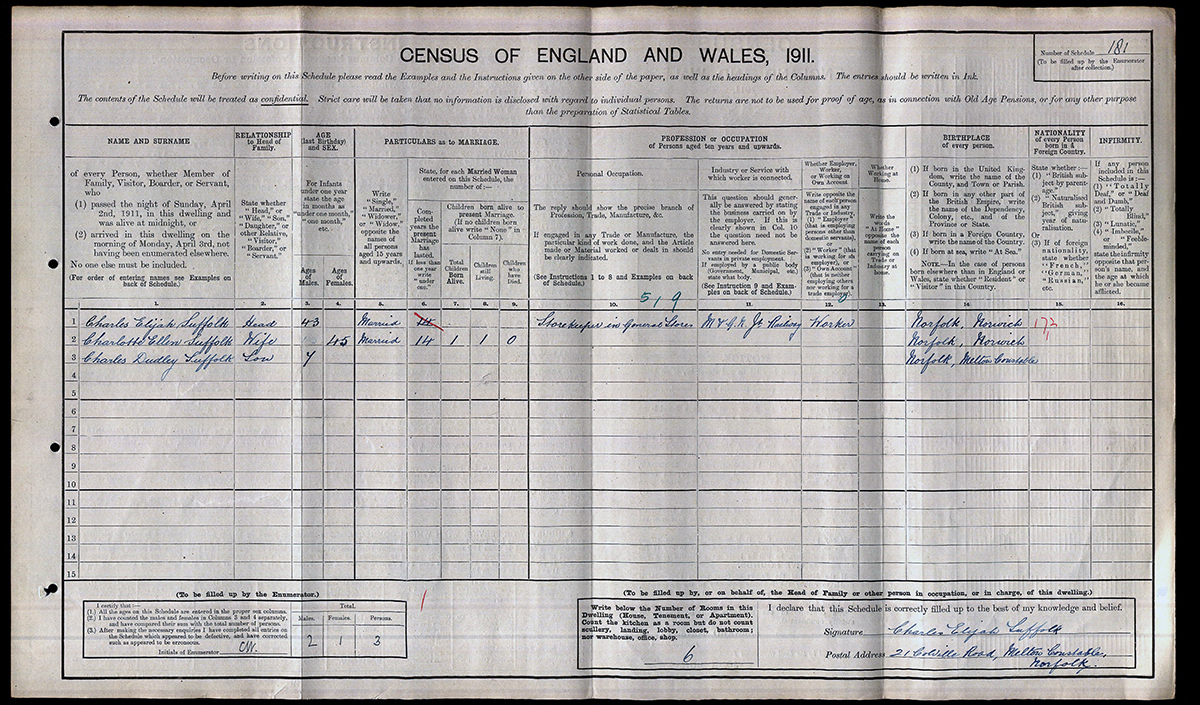 CENSUS OF ENGLAND AND WALES, 1911.
Number of Schedule 181
(To be filled up by the Enumerator
after collection.)
Before writing on this Schedule please read the Examples and the Instructions given on the other side of the paper, as well as the headings of the Columns. The entries should be written in Ink.
The contents of the Schedule will be treated as confidential. Strict care will be taken that no information is disclosed with regard to individual persons. The returns are not to be used for proof of age, as in connection with Old Age Pensions, or for any other purpose
than the preparation of Statistical Tables.
NAME AND SURNAME
of every Person, whether Member of
Family, Visitor, Boarder, or Servant,
who
(1) passed the night of Sunday, April
2nd, 1911, in this dwelling and
was alive at midnight, or
(2) arrived in this dwelling on the
morning of Monday, April 3rd, not
having been enumerated elsewhere.
No one else must be included.
(For order of entering names see Examples on
back of Schedule.)
RELATIONSHIP
to Head of
Family.
State whether
"Head," or
"Wife," "Son,"
"Daughter," or
other Relative,
"Visitor,"
"Boarder," or
"Servant."
AGE
(last Birthday)
and SEX.
For Infants
under one year
state the age
in months as
"under one month,"
"one month,"
etc.
Ages
of
Males.
Ages
of
Females.
PARTICULARS as to MARRIAGE.
Write
"Single,"
"Married,"
"Widower,"
or "Widow,"
opposite the
names of
all persons
aged 15 years
and upwards.
State, for each Married Woman
entered on this Schedule, the
number of:—
Completed
years the
present
Marriage
has
lasted.
If less than
one year
write
"under
one."
Children born alive to
present Marriage.
(If no children born
alive write "None" in
Column 7).
Total
Children
Born
Alive.
Children
still
Living.
Children
who
have
Died.
PROFESSION or OCCUPATION
of Persons aged ten years and upwards.
Personal Occupation.
The reply should show the precise branch of
Profession, Trade, Manufacture, &c.
If engaged in any Trade or Manufacture, the
particular kind of work done, and the Article
made or Material worked or dealt in should
be clearly indicated.
(See Instructions 1 to 8 and Examples on back
of Schedule.)
519
Industry or Service with
which worker is connected.
This question should generally be answered by stating
the business carried on by
the employer. If this is
clearly shown in Col. 10
the question need not be
answered here.
No entry needed for Domestic Servants in private employment.
If employed by a public body
(Government, Municipal, etc.)
state what body.
(See Instruction 9 and Examples on back of Schedule.)
Whether Employer,
Worker,
or Working on
Own Account.
Write opposite the
name of each person
engaged in any
Trade or Industry,
(1) "Employer"
(that is employing
persons other than
domestic servants),
or
(2) "Worker" (that
is working for an
employer), or
(3) "Own Account"
(that is neither
employing others
nor working for a
trade employer).
Whether
Working at
Home.
Write the
words
"At Home"
opposite the
name of each
person
carrying on
Trade or
Industry at
home.
BIRTHPLACE
of every person.
(1) If born in the United Kingdom, write the name of the
County, and Town or Parish.
(2) If born in any other part of
the British Empire, write
the name of the Dependency,
Colony, etc., and of the
Province or State.
(3) If born in a Foreign Country,
write the name of the Country.
(4) If born at sea, write "At Sea."
NOTE.—In the case of persons
born elsewhere than in England or
Wales, state whether "Resident" or
"Visitor" in this Country.
NATIONALITY
of every Person
born in a
Foreign Country.
State whether:—
(1) "British subject by parentage."
(2) "Naturalised
British subject," giving
year of naturalisation.
Or
(3) If of foreign
nationality,
state whether
"French,"
"German,"
"Russian,"
etc.
INFIRMITY.
If any person
included in this
Schedule is:—
(1) "Totally
Deaf," or "Deaf
and Dumb,"
(2) "Totally
Blind,"
(3) "Lunatic,"
(4) "Imbecile,"
or "Feeble-minded,"
state the infirmity
opposite that person's name, and
the age at which
he or she became
afflicted.
1. 2. 3. 4. 5. 6. 7. 8. 9. 10. 11. 12. 13. 14. 15. 16.
1 Charles Elijah Suffolk Head 43 Married 14 Storekeeper in General Stores M & G.N. Jt Railway Worker Norfolk, Norwich 173
2 Charlotte Ellen Suffolk Wife 45 Married 14 1 1 0 Norfolk, Norwich
3 Charles Dudley Suffolk Son 7 Norfolk, Melton Constable
4
5
6
7
8
9
10
11
12
13
14
15
(To be filled up by the Enumerator.)
I certify that:—
(1.) All the ages on this Schedule are entered in the proper sex columns.
(2.) I have counted the males and females in Columns 3 and 4 separately,
and have compared their sum with the total number of persons.
(3.) After making the necessary enquiries I have completed all entries on
the Schedule which appeared to be defective, and have corrected
such as appeared to be erroneous.
Initials of Enumerator
Total.
Males. Females. Persons.
2 1 3
(To be filled up by, or on behalf of, the Head of Family or other person in occupation, or in charge, of this dwelling.)
Write below the Number of Rooms in this
Dwelling (House, Tenement, or Apartment).
Count the kitchen as a room but do not count
scullery, landing, lobby, closet, bathroom;
nor warehouse, office, shop.
6
I declare that this Schedule is correctly filled up to the best of my knowledge and belief.
Signature Charles Elijah Suffolk
Postal Address 21 Colville Road, Melton Constable,
Norfolk.